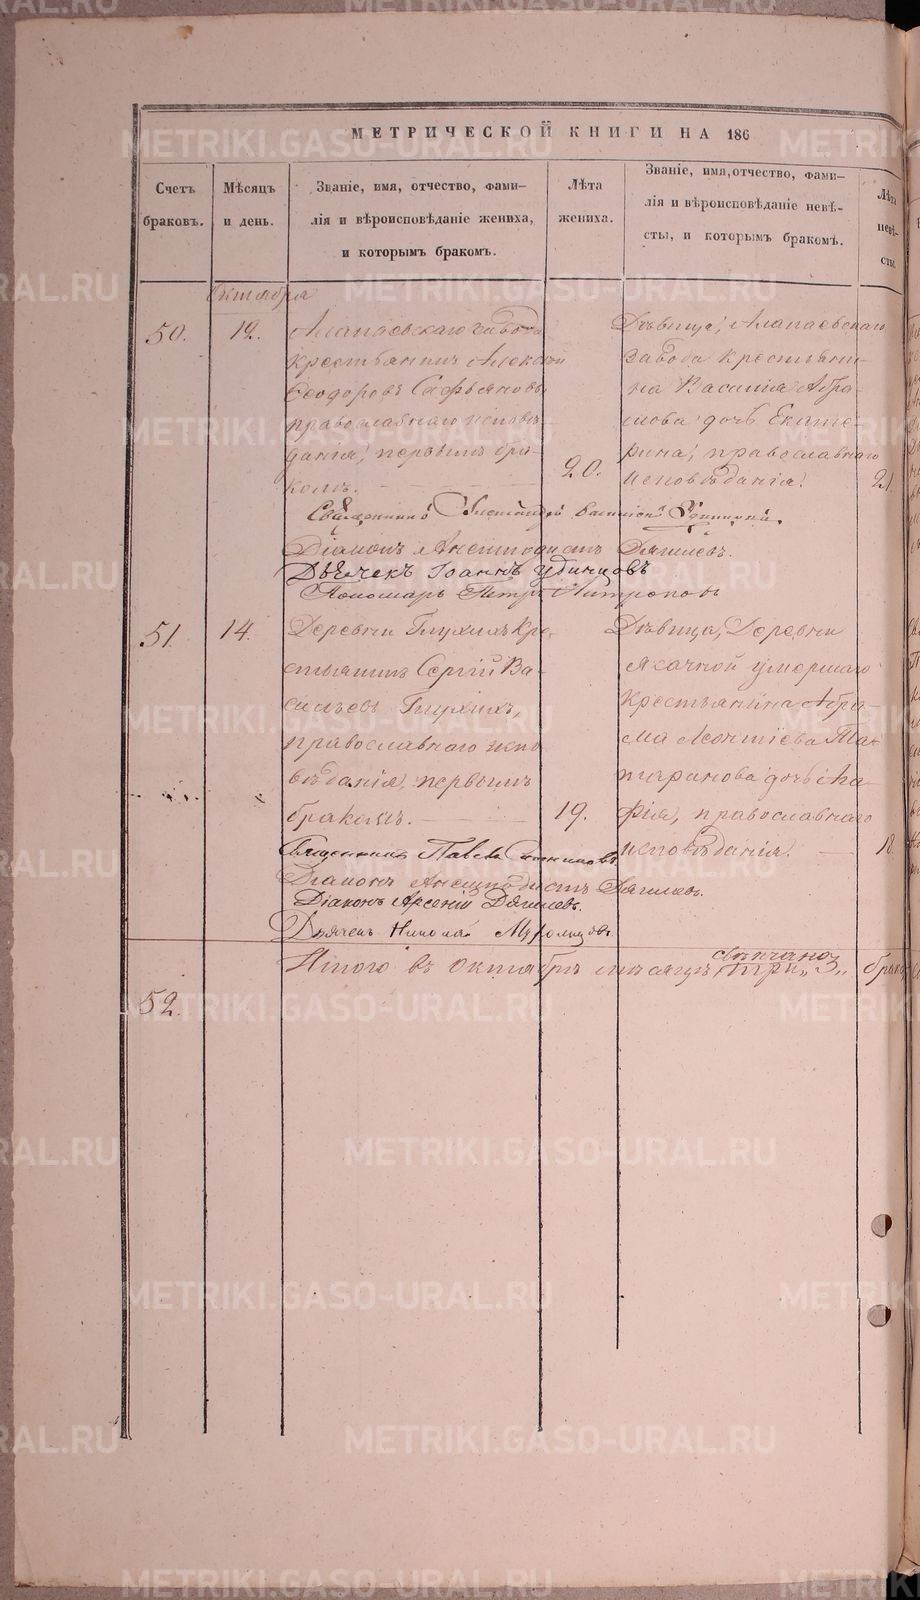 МЕТРИЧЕСКОЙ КНИГИ НА 186
Счетъ браковъ.
Мѣсяцъ и день.
Званіе, имя, отчество, фами-
лія и вѣроисповѣданіе жениха,
и которымъ бракомъ.
Лѣта жениха.
Званіе, имя, отчество, фами-
лія и вѣроисповѣданіе невѣ-
сты, и которымъ бракомъ.
Лѣта
невѣ-
сты.
Октября
50.
12.
Алапаевскаго завода
крестьянинъ Алексѣй
Ѳеодоровъ Сафьяновъ,
православнаго исповѣ-
данія, первымъ бра-
комъ.
20.
Дѣвица, Алапаевскаго
завода крестьяни-
на Василія Абра-
мова дочь Екате-
рина, православнаго
исповѣданія.
21
Священникъ Василій
Діаконъ Анемподистъ Дягилевъ.
Дьячекъ Іоаннъ Удинцовъ
Пономарь Петръ Митрополовъ
51.
14.
Деревни Глухихъ кре-
стьянинъ Сергій Ва-
сильевъ Глухихъ,
православнаго испо
вѣданія, первымъ
бракомъ.
19.
Дѣвица, Деревни
Ясачной умершаго
крестьянина Абра-
ма Леонтіева Та-
таринова дочь Ма-
рія, православнаго
исповѣданія.
18.
Священникъ Павелъ
Діаконъ Анемподистъ Дягилевъ.
Діаконъ Арсеній Дягилевъ.
Дьячекъ Николай
Итого въ октябрѣ мѣсяцѣ свѣнчано три „3„ брак
52.
METRIKI.GASO-URAL.RU